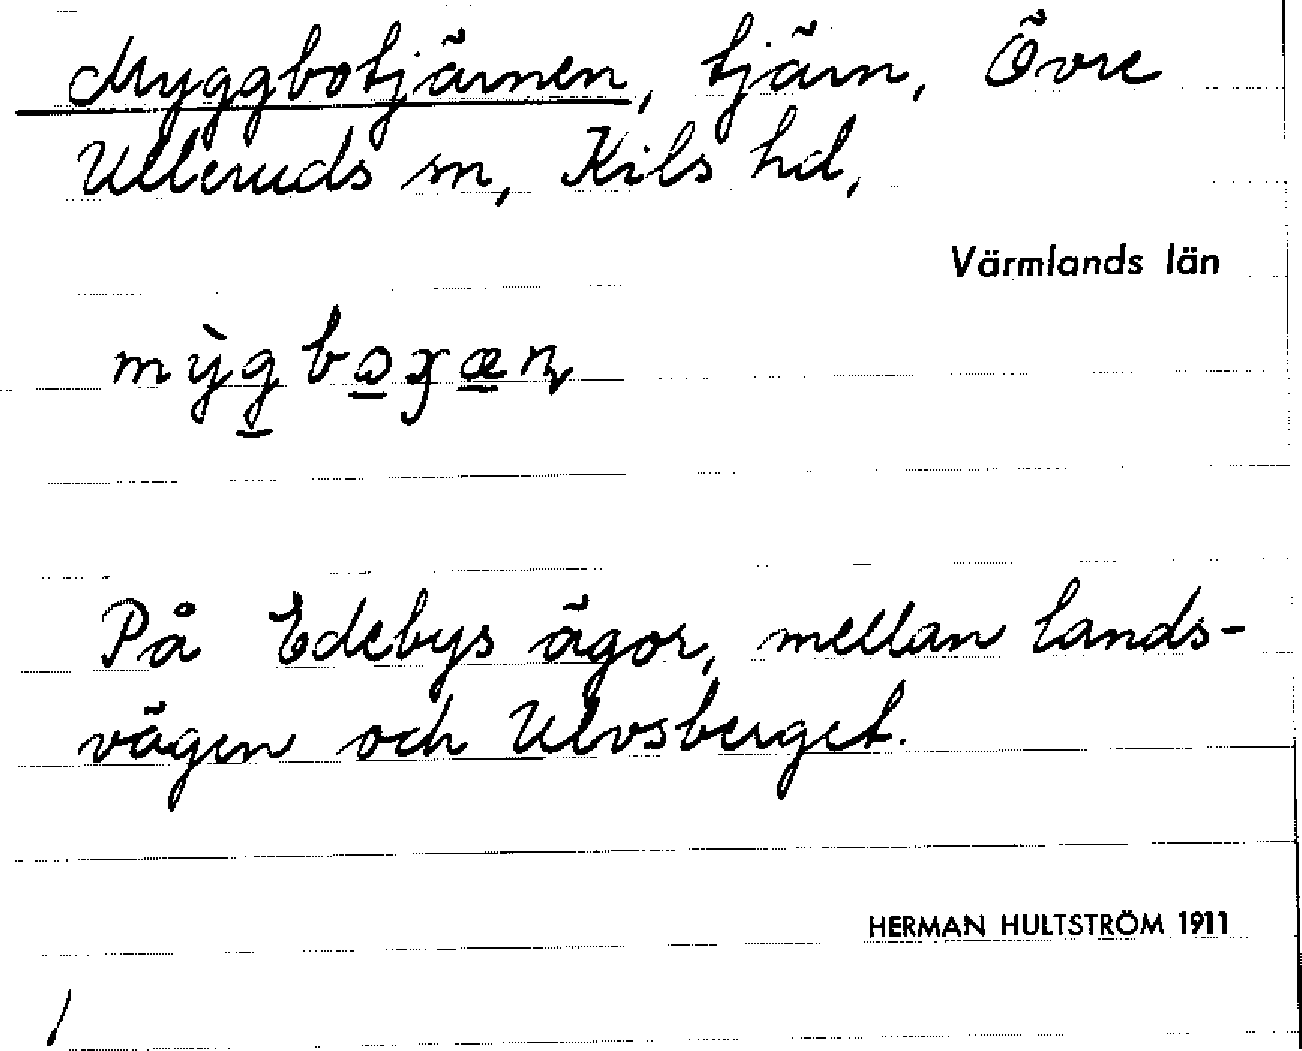 Myggbotjärnen, tjärn, Övre
Ulleruds sn, Kils hd,
Värmlands län
På Edebys ägor, mellan lands-
vägen och Ulvsberget.
HERMAN HULTSTRÖM 1911